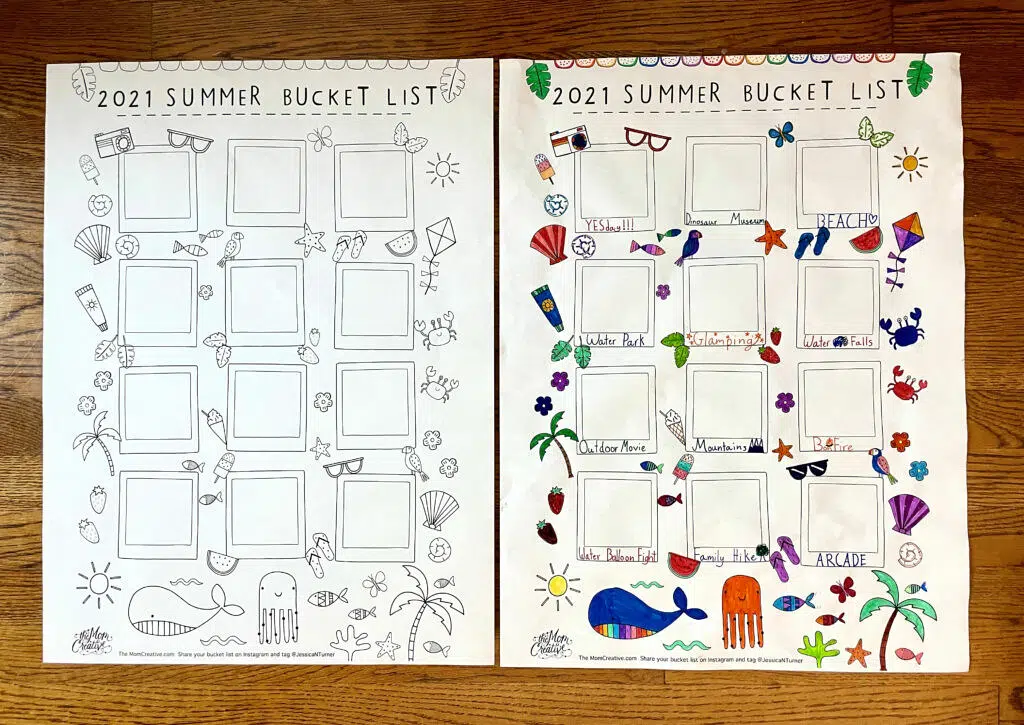 2021 SUMMER BUCKET LIST
the Mom Creative
The MomCreative.com Share your bucket list on Instagram and tag @JessicaNTurner
2021 SUMMER BUCKET LIST
YESday!!! Dinosaur Museum BEACH
Water Park Glamping Water Falls
Outdoor Movie Mountains BonFire
Water Balloon Fight Family Hike ARCADE
the Mom Creative
The MomCreative.com Share your bucket list on Instagram and tag @JessicaNTurner